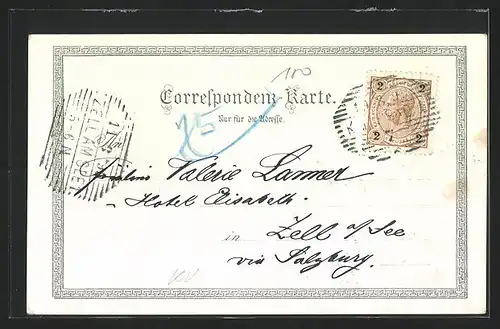 100
Correspondenz-Karte.
Nur für die Adresse.
25
2 2
2 2
ZELL AM SEE
5-6 N
Fräulein Valerie Lanner
Hotel Elisabeth
in Zell a/See
via Salzburg.